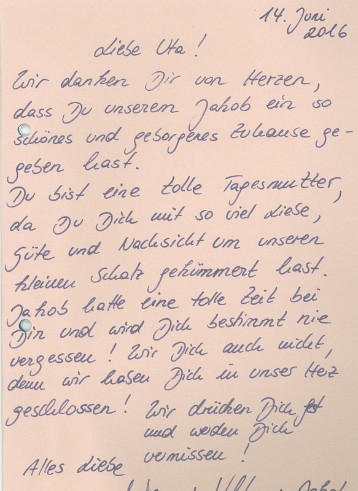 14. Juni
2016
Liebe Uta!
Wir danken Dir von Herzen,
dass Du unserem Jakob ein so
schönes und geborgenes Zuhause ge-
geben hast.
Du bist eine tolle Tagesmutter,
da Du Dich mit so viel Liebe,
Güte und Nachsicht um unseren
kleinen Schatz gekümmert hast.
Jakob hatte eine tolle Zeit bei
Dir und wird Dich bestimmt nie
vergessen! Wir Dich auch nicht,
denn wir haben Dich in unser Herz
geschlossen! Wir drücken Dich fest
und werden Dich
vermissen!
Alles Liebe
Jakob